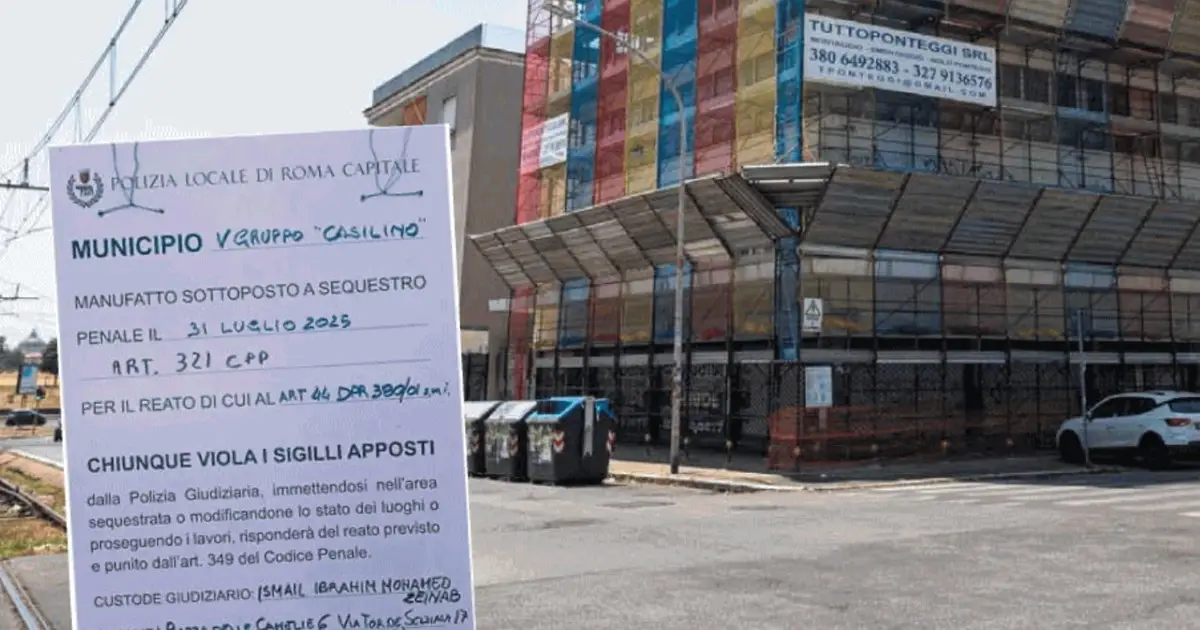 POLIZIA LOCALE DI ROMA CAPITALE
MUNICIPIO V GRUPPO "CASILINO"
MANUFATTO SOTTOPOSTO A SEQUESTRO
PENALE IL 31 LUGLIO 2025
ART. 321 CPP
PER IL REATO DI CUI AL ART 44 DPR 380/01 s.m.i.
CHIUNQUE VIOLA I SIGILLI APPOSTI
dalla Polizia Giudiziaria, immettendosi nell'area
sequestrata o modificandone lo stato dei luoghi o
proseguendo i lavori, risponderà del reato previsto
e punito dall'art. 349 del Codice Penale.
CUSTODE GIUDIZIARIO: ISMAIL IBRAHIM MOHAMED
ZEINAB
DELLE CAMELIE 6 VIA TOR DE SCHIAVI
TUTTOPONTEGGI SRL
MONTAGGIO - SMONTAGGIO - NOLO PONTEGGI
380 6492883 - 327 9136576
TPONTEGGI@GMAIL.COM